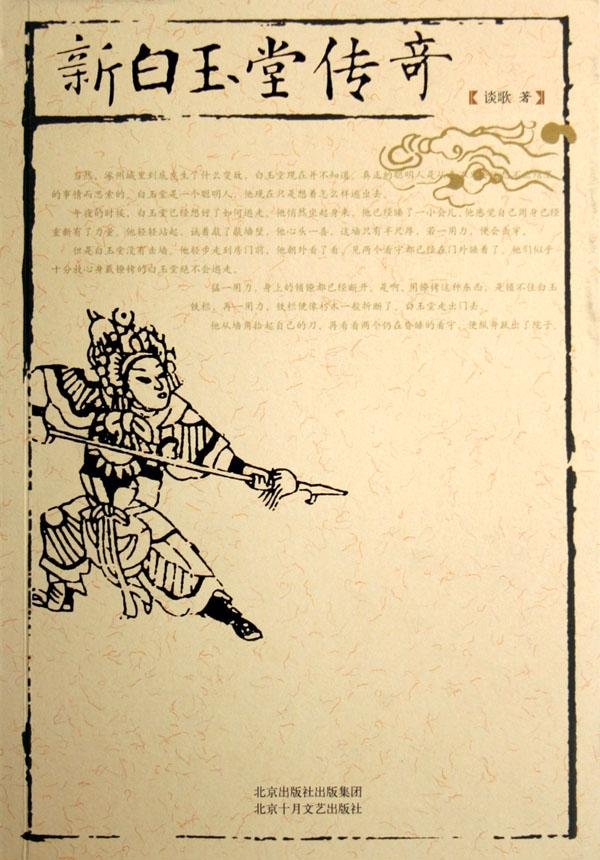 新白玉堂传奇
【谈歌 著】
当然，涿州城里到底发生了什么变故，白玉堂现在并不知道。真正的聪明人是从
的事情而思索的。白玉堂是一个聪明人，他现在只是想着怎么样逃出去。
午夜的时候，白玉堂已经想好了如何逃走。他悄然坐起身来，他已经睡了一小会儿，他感觉自己周身已经
重新有了力量。他轻轻站起，试着敲了敲墙壁，他心头一喜，这墙只有半尺厚，若一用力，便会轰穿。
但是白玉堂没有击墙，他轻步走到房门前，他朝外看了看，见两个看守都已经在门外睡着了，他们似乎
十分放心身戴镣铐的白玉堂绝不会逃走。
猛一用力，身上的锁镣都已经断开，是啊，用镣铐这种东西，是锁不住白玉
铁栏，再一用力，铁栏便像朽木一般折断了，白玉堂走出门去。
他从墙角拾起自己的刀，再看看两个仍在昏睡的看守，便纵身跃出了院子。
北京出版社出版集团
北京十月文艺出版社